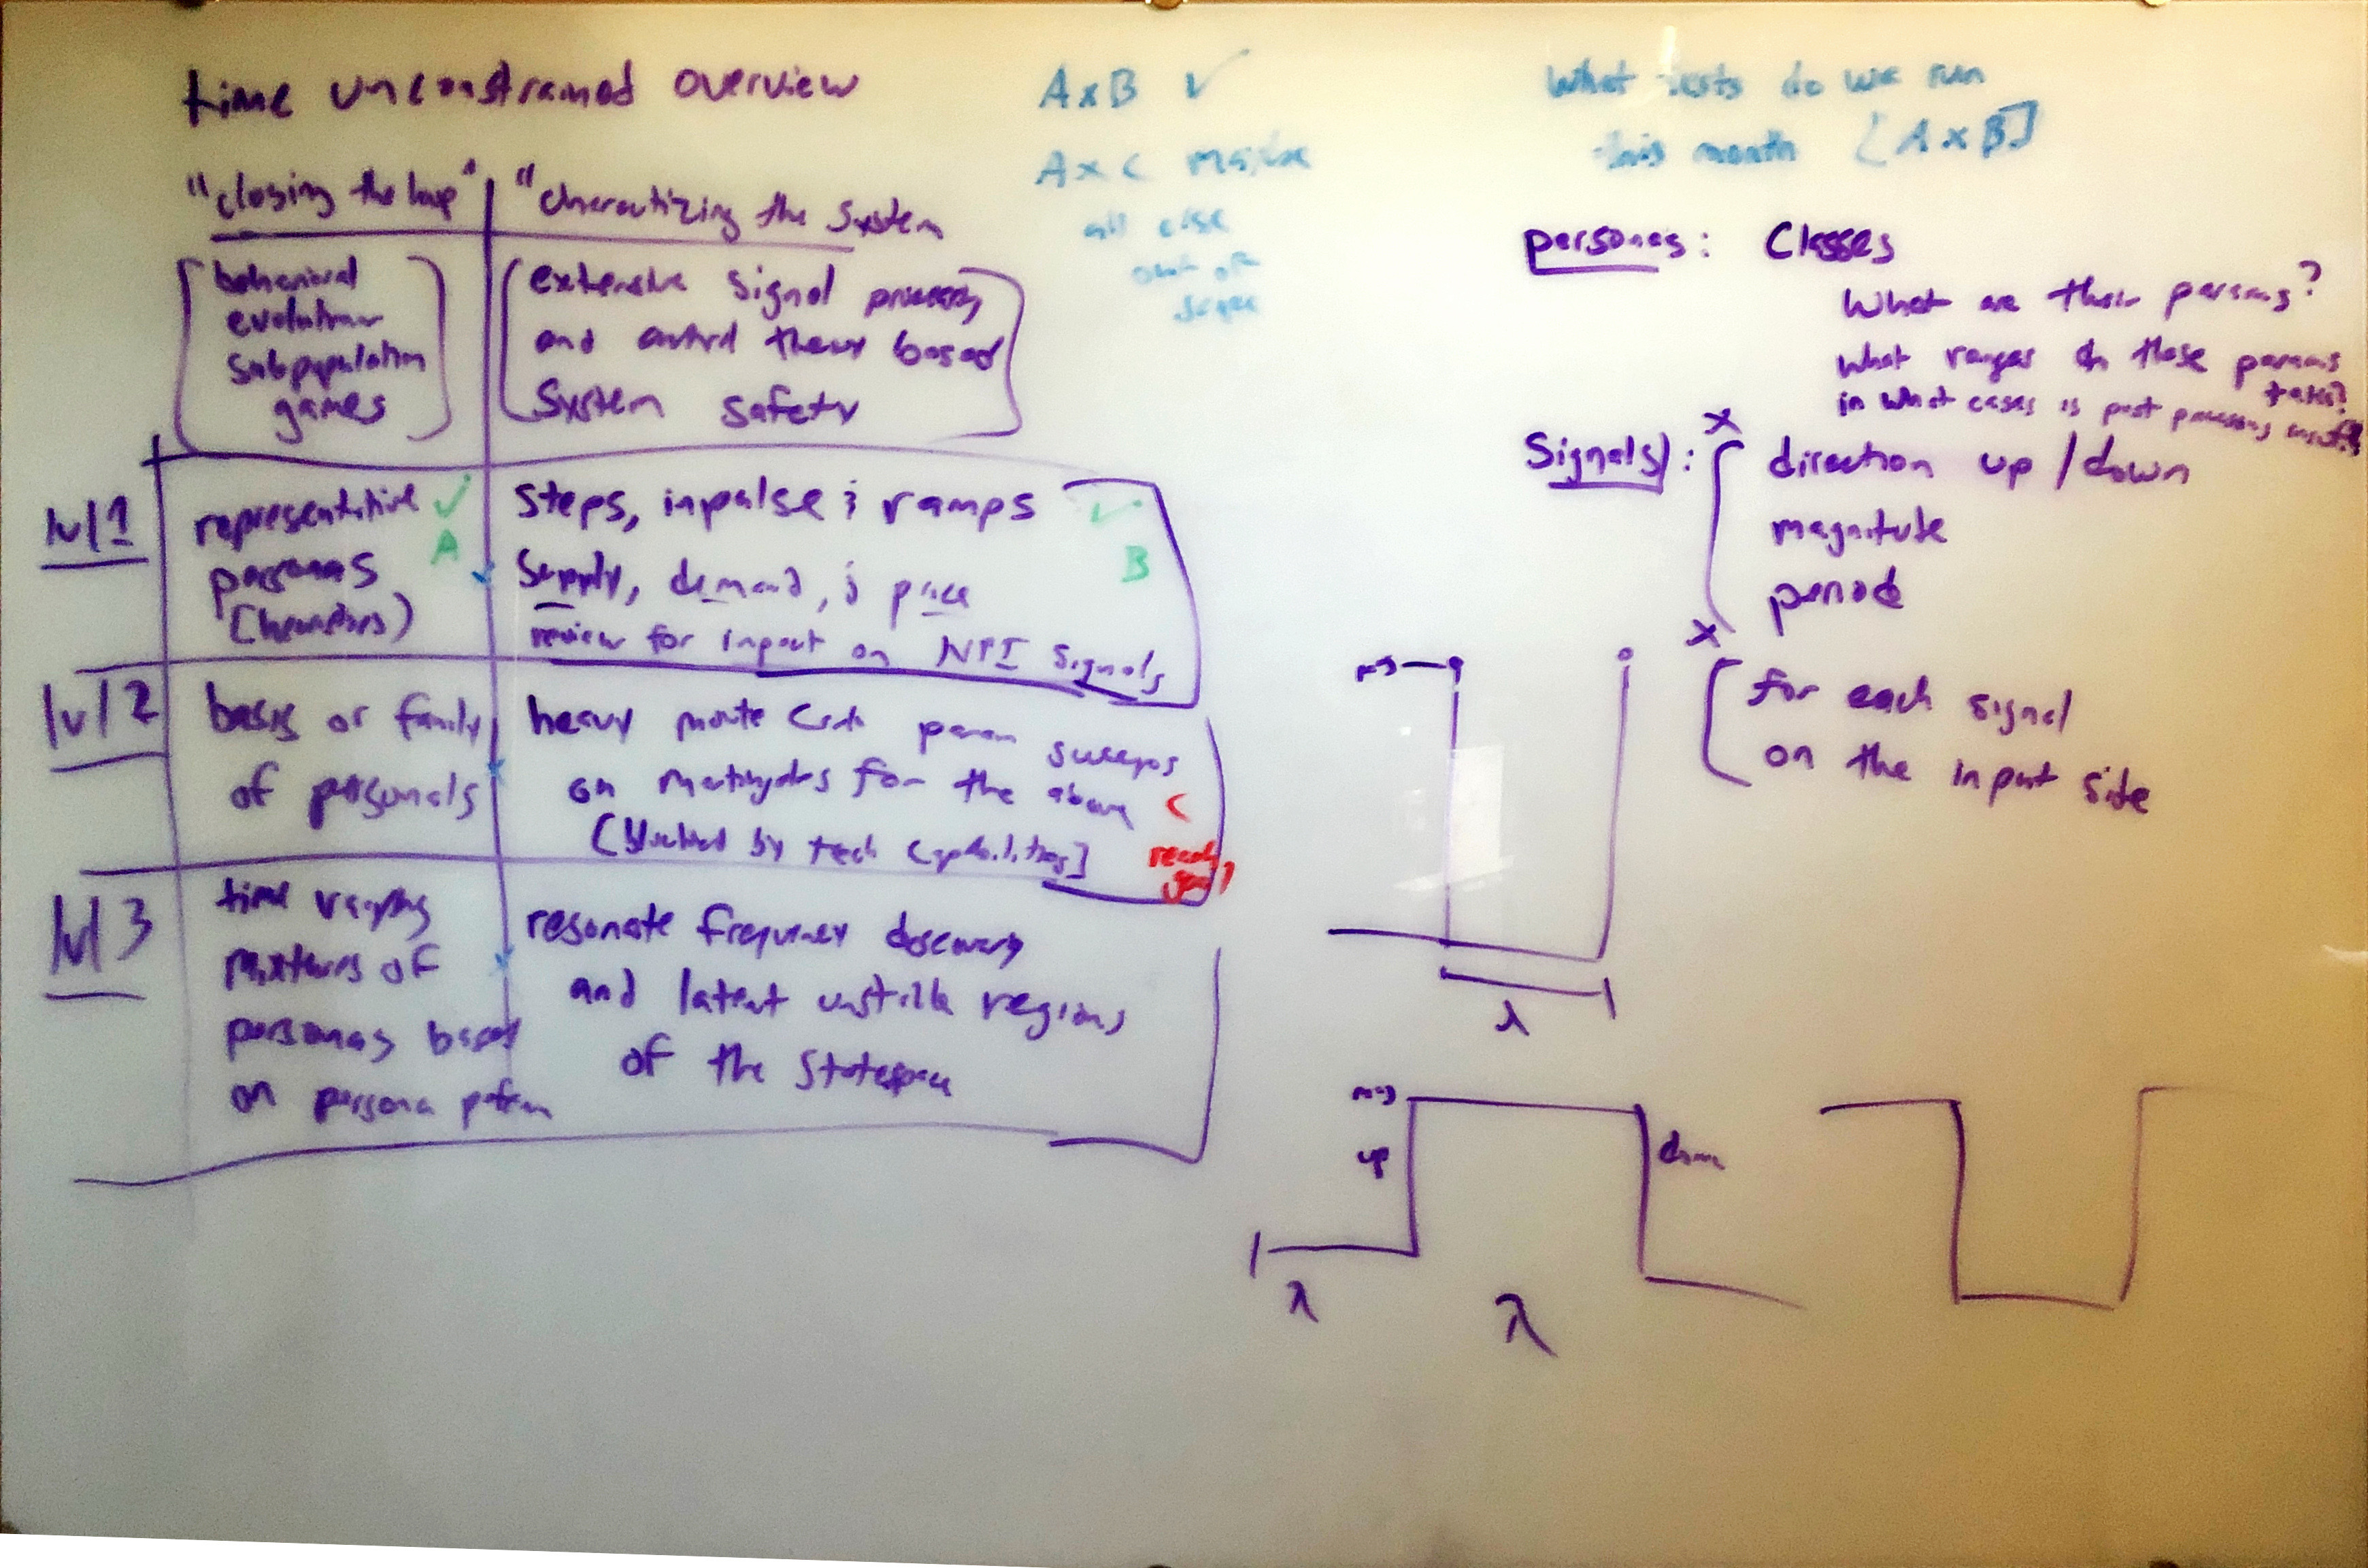 time unconstrained overview
"closing the loop"
"charactizing the System
[behavioral
evolutionary
subpopulation
games]
[extensive signal processing
and control theory based
System safety]
lvl 1
representitive ✓
personas A
(heuristics)
Steps, inpulse & ramps ✓
Supply, demand, & price B
review for impact on NPI signals
lvl 2
basis or family
of personals
heavy monte Carlo param sweeps
on for the above C
(blocked by tech capabilities]
reach
goal
lvl 3
time varying
mixtures of
personas based
on persona
resonate frequency discovery
and latent unstable regions
of the Statespace
AxB ✓
AxC maybe
all else
out of
scope
What tests do we run
this month [AxB]
personas: Classes
What are their params?
What ranges do those params
take?
in what cases is post processing
Signals: x
direction up / down
magnitude
period
x
for each signal
on the input side
mag
λ
mag
up
down
λ
λ